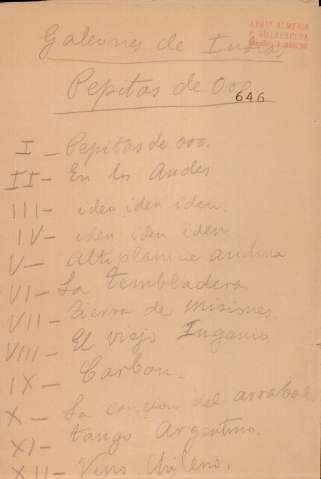 ARTº ALMERIA
F. VILLAESPESA
Galeones de Indias
Pepitas de oro
646
I - Pepitas de oro.
II - En los Andes
III - idem idem idem.
IV - idem idem idem
V - Altiplanicie andina
VI - La tembladera
VII - Tierra de Misiones.
VIII - El viejo
IX - Carbon.
X - La cancion del arrabal
XI - Tango Argentino.
XII - Vino Chileno.